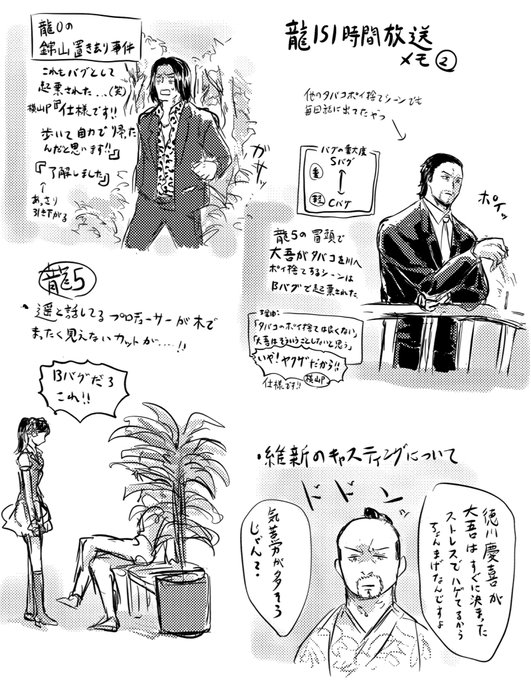 龍151時間放送
メモ②
龍0の
錦山置き去り事件
これもバグとして
起票された...(笑)
横山P『仕様です!!
歩いて自力で帰った
んだと思います!!』
『了解しました』
↑
あっさり
引き下がる
ガサッ
他のタバコポイ捨てシーンでも
毎回話に出てたやつ
バグの重大度
重 Sバグ
軽 Cバグ
ポイッ
龍5の冒頭で
大吾がタバコを川へ
ポイ捨てするシーンは
Bバグで起票された
理由:
「タバコのポイ捨ては良くない」
「大吾はそういうことしないと思う」
いや!ヤクザだから!!
仕様です!! 横山P
龍5
・遥と話してるプロデューサーが木で
まったく見えないカットが...!!
Bバグだろ
これ!!
・維新のキャスティングについて
ドドン
徳川慶喜が
大吾はすぐに決まった
ストレスでハゲてるから
ちょんまげなんですよ
気苦労が多そう
じゃんて。